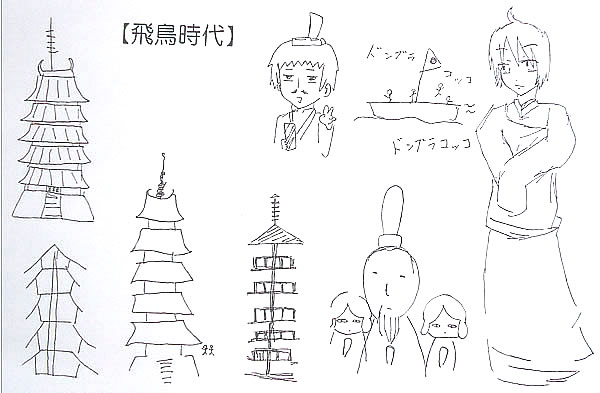 【飛鳥時代】
ドンブラ
コッコ
ドンブラコッコ